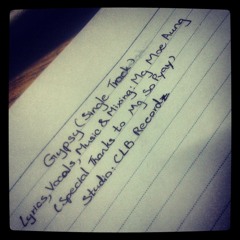 Gypsy (Single Track)
Lyrics, Vocals, Music & Mixing: Mg Moe Aung
(Special Thanks to Mg So Pyay)
Studio: CLB Records